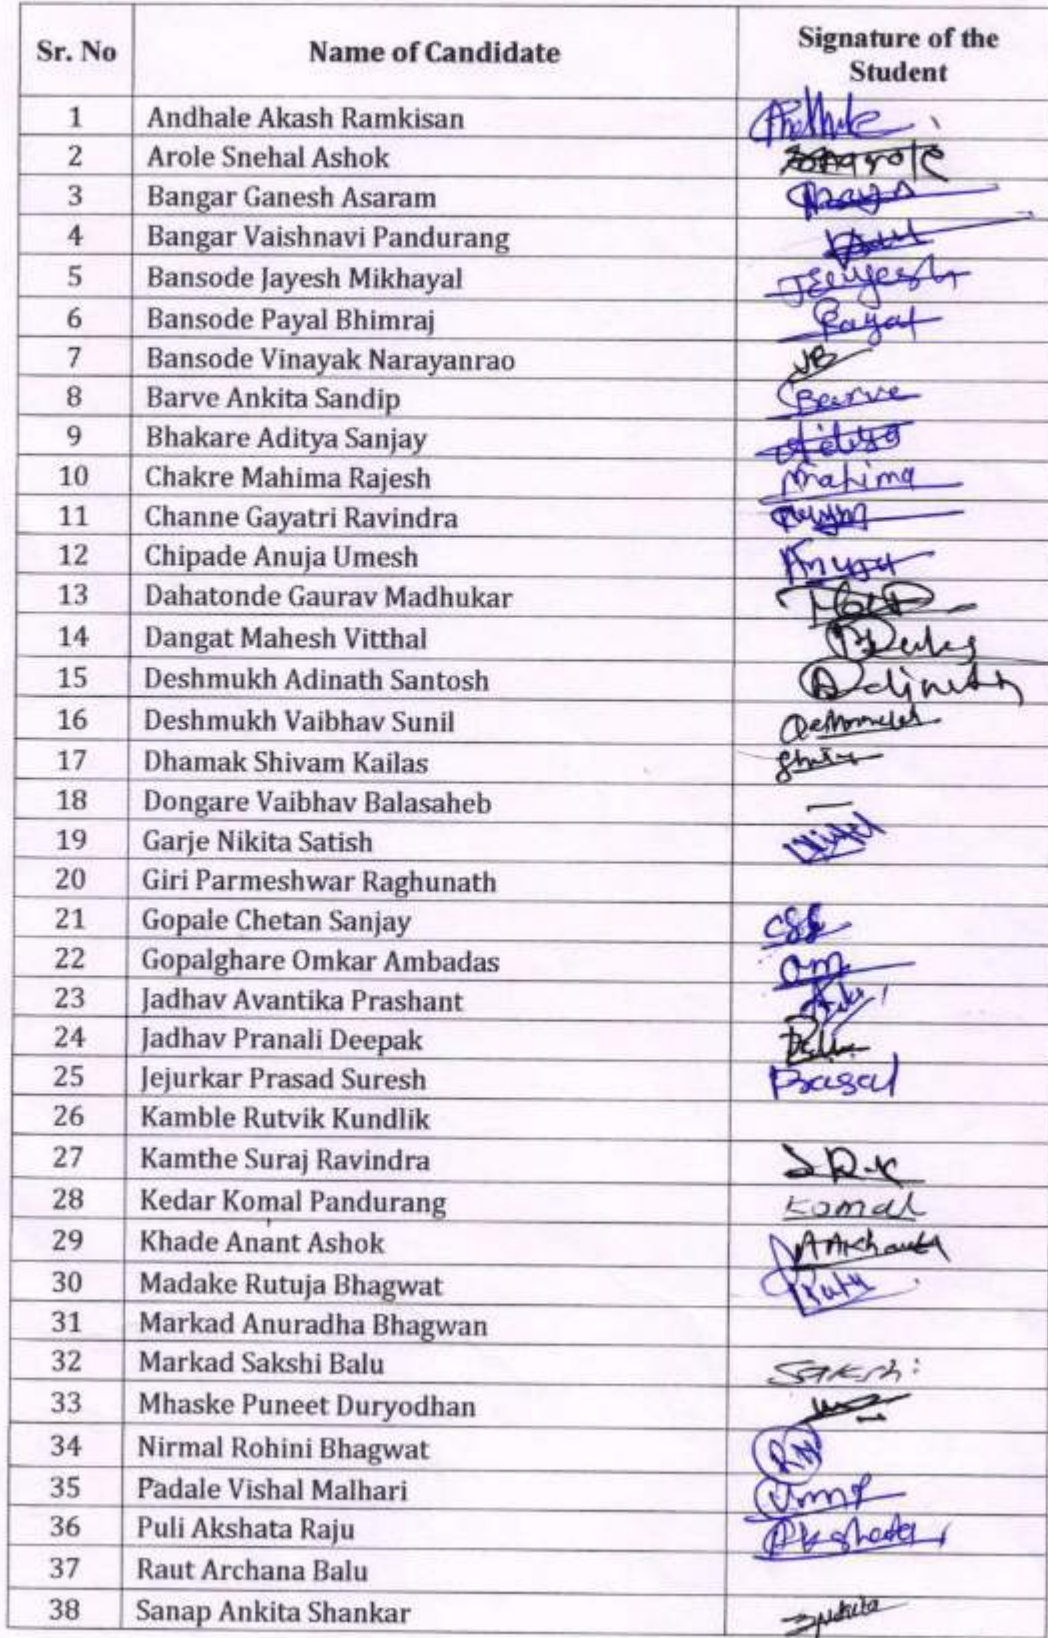 Sr. No Name of Candidate Signature of the Student
1 Andhale Akash Ramkisan
2 Arole Snehal Ashok
3 Bangar Ganesh Asaram
4 Bangar Vaishnavi Pandurang
5 Bansode Jayesh Mikhayal
6 Bansode Payal Bhimraj Payal
7 Bansode Vinayak Narayanrao VB
8 Barve Ankita Sandip Barve
9 Bhakare Aditya Sanjay
10 Chakre Mahima Rajesh Mahima
11 Channe Gayatri Ravindra
12 Chipade Anuja Umesh Anuja
13 Dahatonde Gaurav Madhukar
14 Dangat Mahesh Vitthal
15 Deshmukh Adinath Santosh Adinath
16 Deshmukh Vaibhav Sunil
17 Dhamak Shivam Kailas
18 Dongare Vaibhav Balasaheb —
19 Garje Nikita Satish
20 Giri Parmeshwar Raghunath
21 Gopale Chetan Sanjay
22 Gopalghare Omkar Ambadas
23 Jadhav Avantika Prashant
24 Jadhav Pranali Deepak
25 Jejurkar Prasad Suresh
26 Kamble Rutvik Kundlik
27 Kamthe Suraj Ravindra
28 Kedar Komal Pandurang Komal
29 Khade Anant Ashok
30 Madake Rutuja Bhagwat
31 Markad Anuradha Bhagwan
32 Markad Sakshi Balu
33 Mhaske Puneet Duryodhan
34 Nirmal Rohini Bhagwat RN
35 Padale Vishal Malhari
36 Puli Akshata Raju Akshata
37 Raut Archana Balu
38 Sanap Ankita Shankar